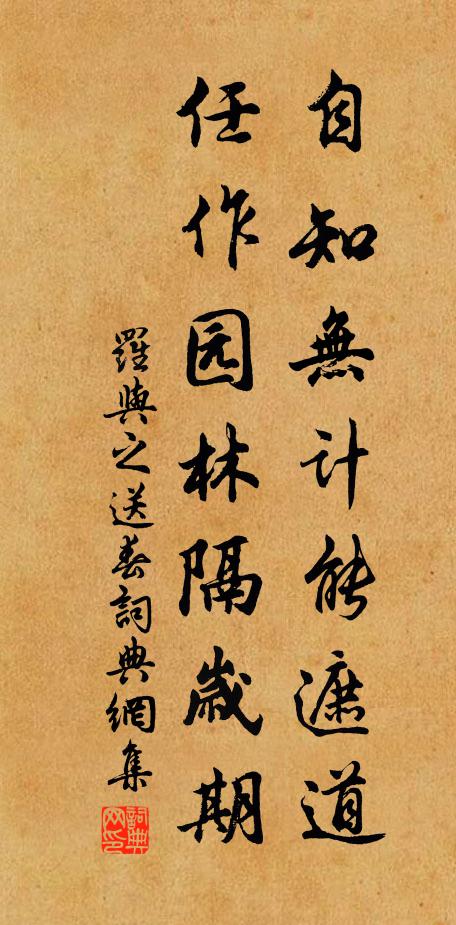 自知無計能遮道
任作园林隔歲期
羅與之送春詞典網集
詞典网印